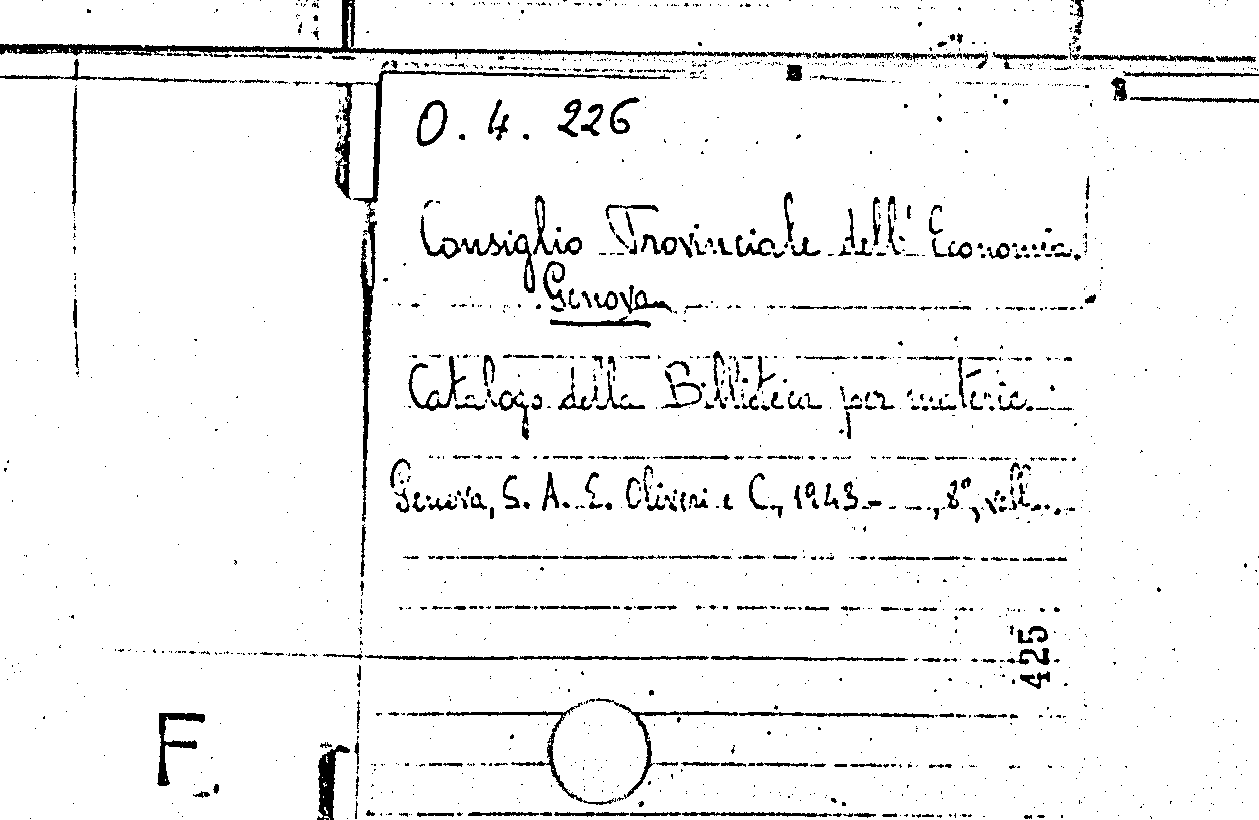 O. 4. 226
Consiglio Provinciale dell' Economia.
Genova
Catalogo della Biblioteca per materie.
Genova, S. A. E. Oliveri e C., 1943- , 8°, voll...
425
F.